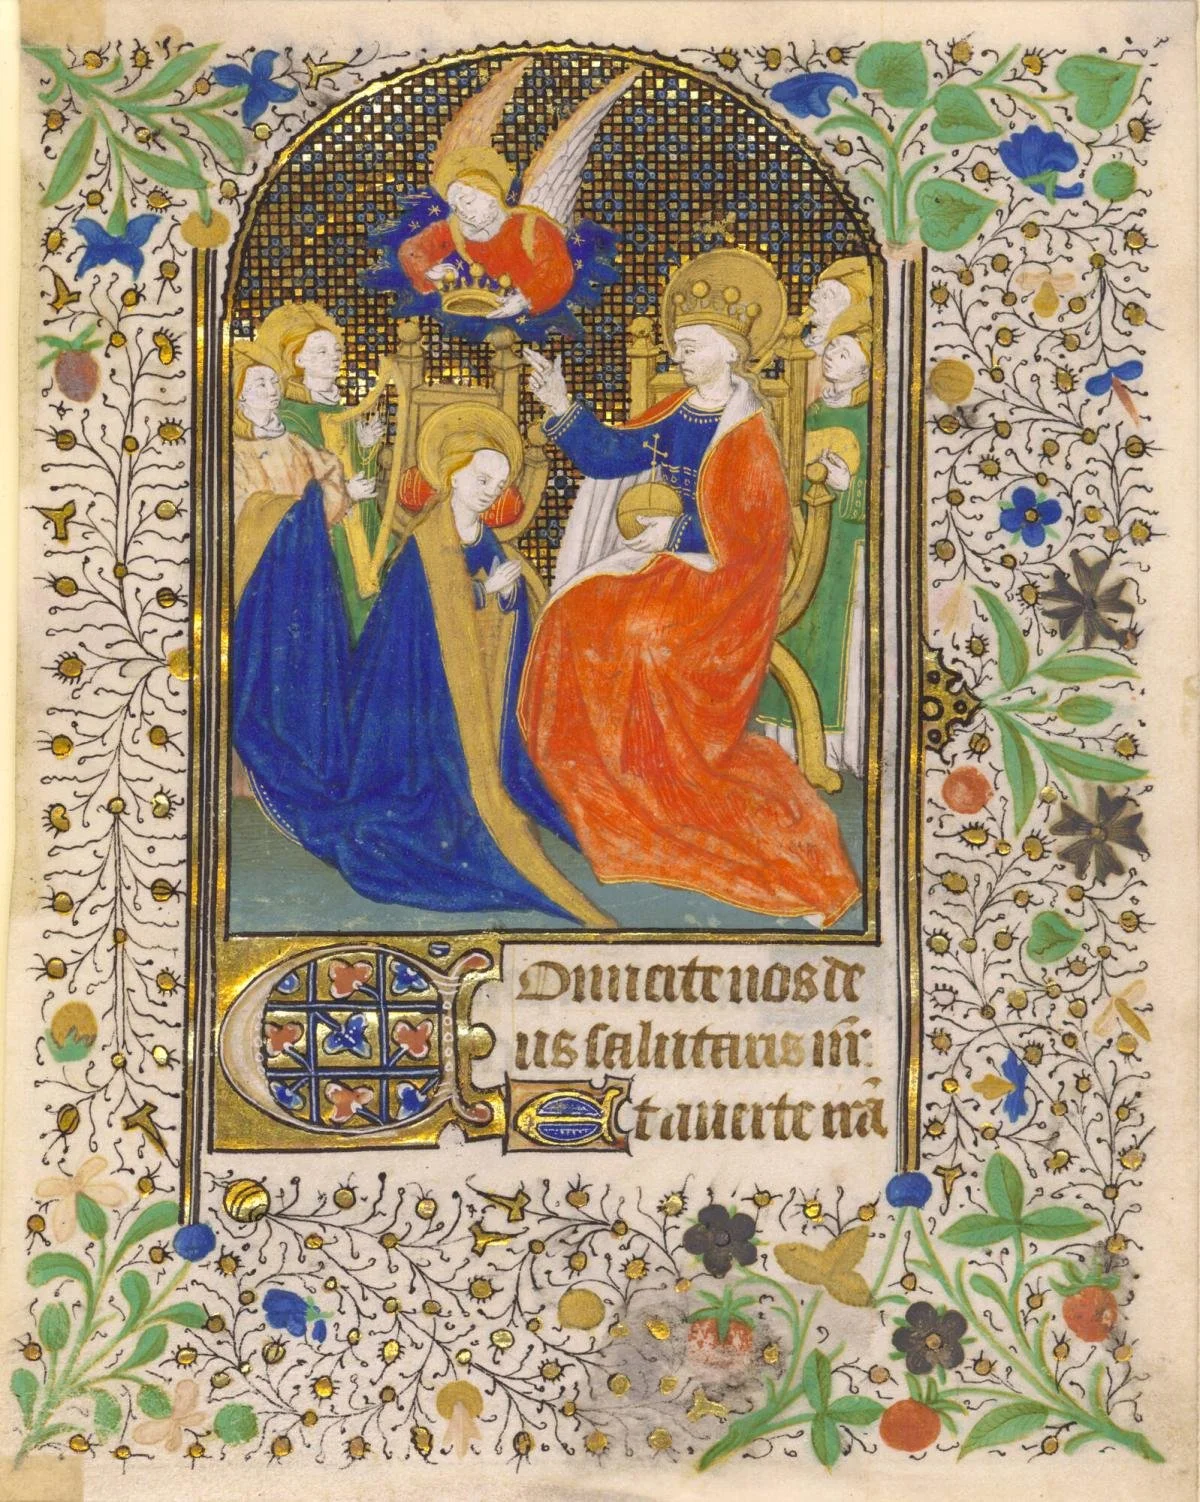 COnuerte nos de
us salutaris nr̄:
Et auerte irā